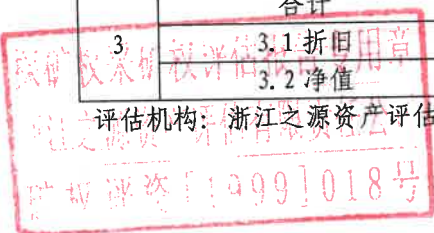 合计
3
3.1折旧
3.2净值
评估机构：浙江之源资产评估
探矿权采矿权评估报告专用章
浙江之源资产评估有限责任公司
矿权评资[1999]018号